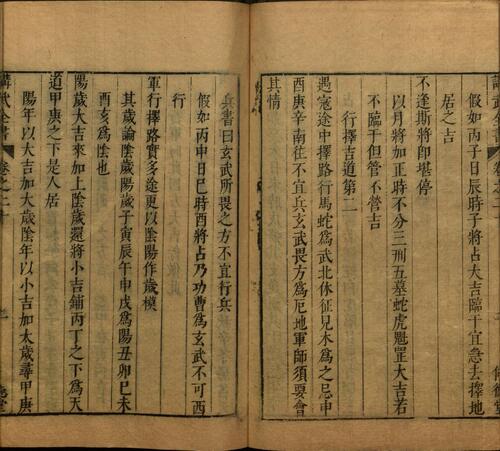 假如丙子日辰時子將占大吉臨干宜急去擇地
居之吉
不逢斯將即堪停
以月將加正時不分三刑五墓蛇虎魁罡大吉若
不臨干但管不營吉
行擇吉道第二
遇寇途中擇路行馬蛇爲武北休征見木爲之忌申
酉庚辛南往不宜兵玄武畏方爲厄地軍師須要會
其情
兵書曰玄武所畏之方不宜行兵
假如丙申日巳時酉將占乃功曹爲玄武不可西
行
軍行擇路實多途更以陰陽作歲模
其歲論陰歲陽歲子寅辰午申戌爲陽丑卯巳未
酉亥爲陰也
陽歲大吉來加上陰歲還將小吉鋪丙丁之下爲天
道甲庚之下是人居
陽年以大吉加大歲陰年以小吉加太歲尋甲庚
講武全書 卷之二十